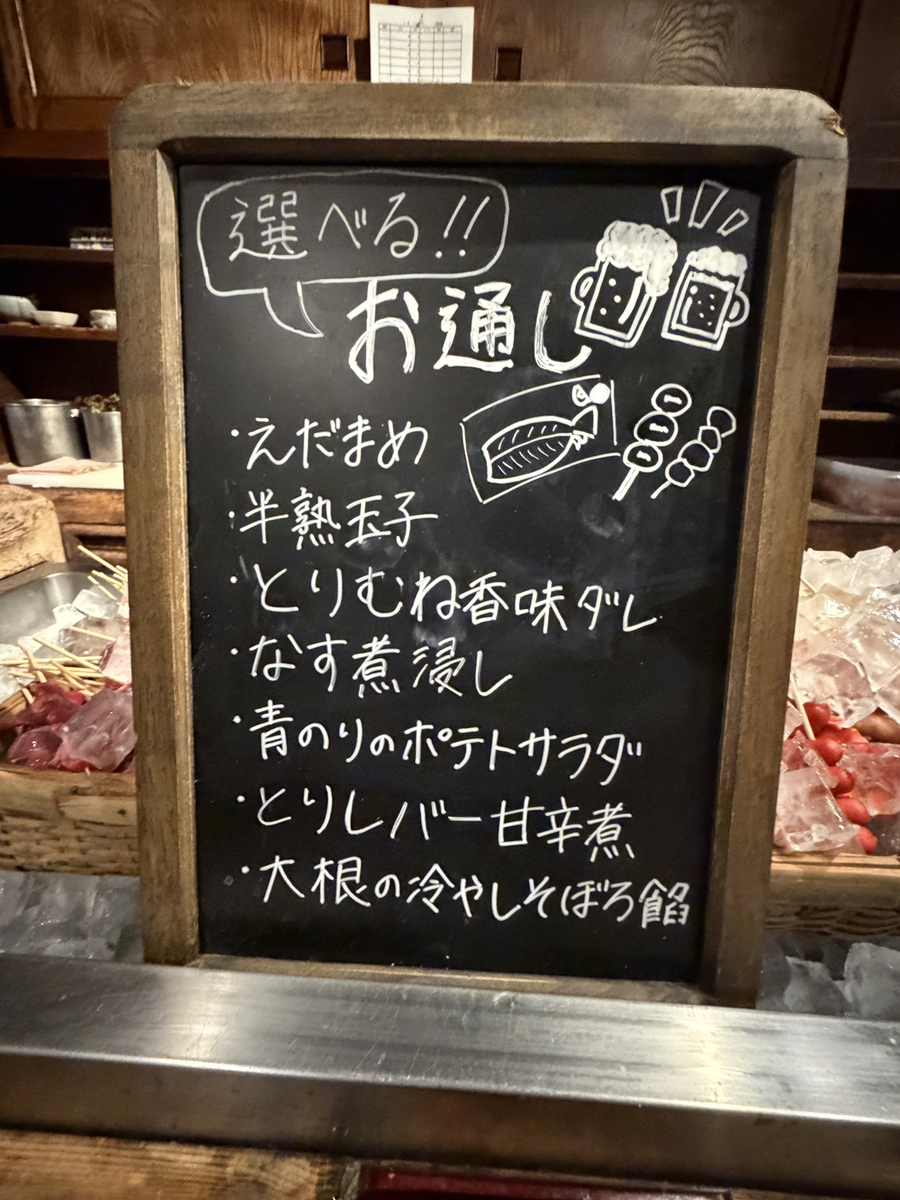 選べる!!
お通し
・えだまめ
・半熟玉子
・とりむね香味ダレ
・なす煮浸し
・青のりのポテトサラダ
・とりレバー甘辛煮
・大根の冷やしそぼろ餡